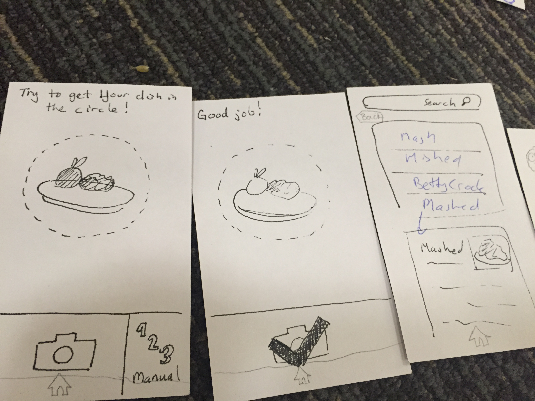 Try to get Your dish in
the circle!
1
2
3
Manual
Good job!
Search
Back
Mash
Mished
Betty Crock
Mashed
Mashed